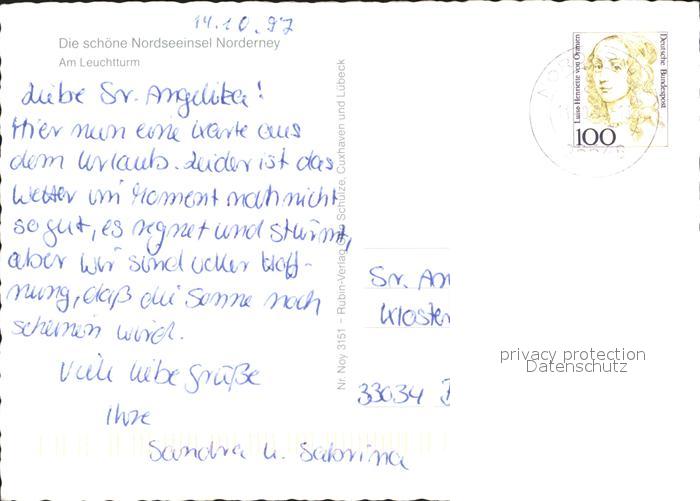 14.10.97
Die schöne Nordseeinsel Norderney
Am Leuchtturm
Liebe Sr. Angelika!
Hier nun eine Karte aus
dem Urlaub. Leider ist das
Wetter im Moment noch nicht
so gut, es regnet und stürmt,
aber wir sind voller Hoff-
nung, daß die Sonne noch
scheinen wird.
Viele liebe Grüße
Ihre
Sandra u. Sabrina
Nr. Noy 3151 – Rubin-Verlag Schulze, Cuxhaven und Lübeck
Luise Henriette von Oranien
Deutsche Bundespost
100
Sr. An
Kloster
33034
privacy protection
Datenschutz